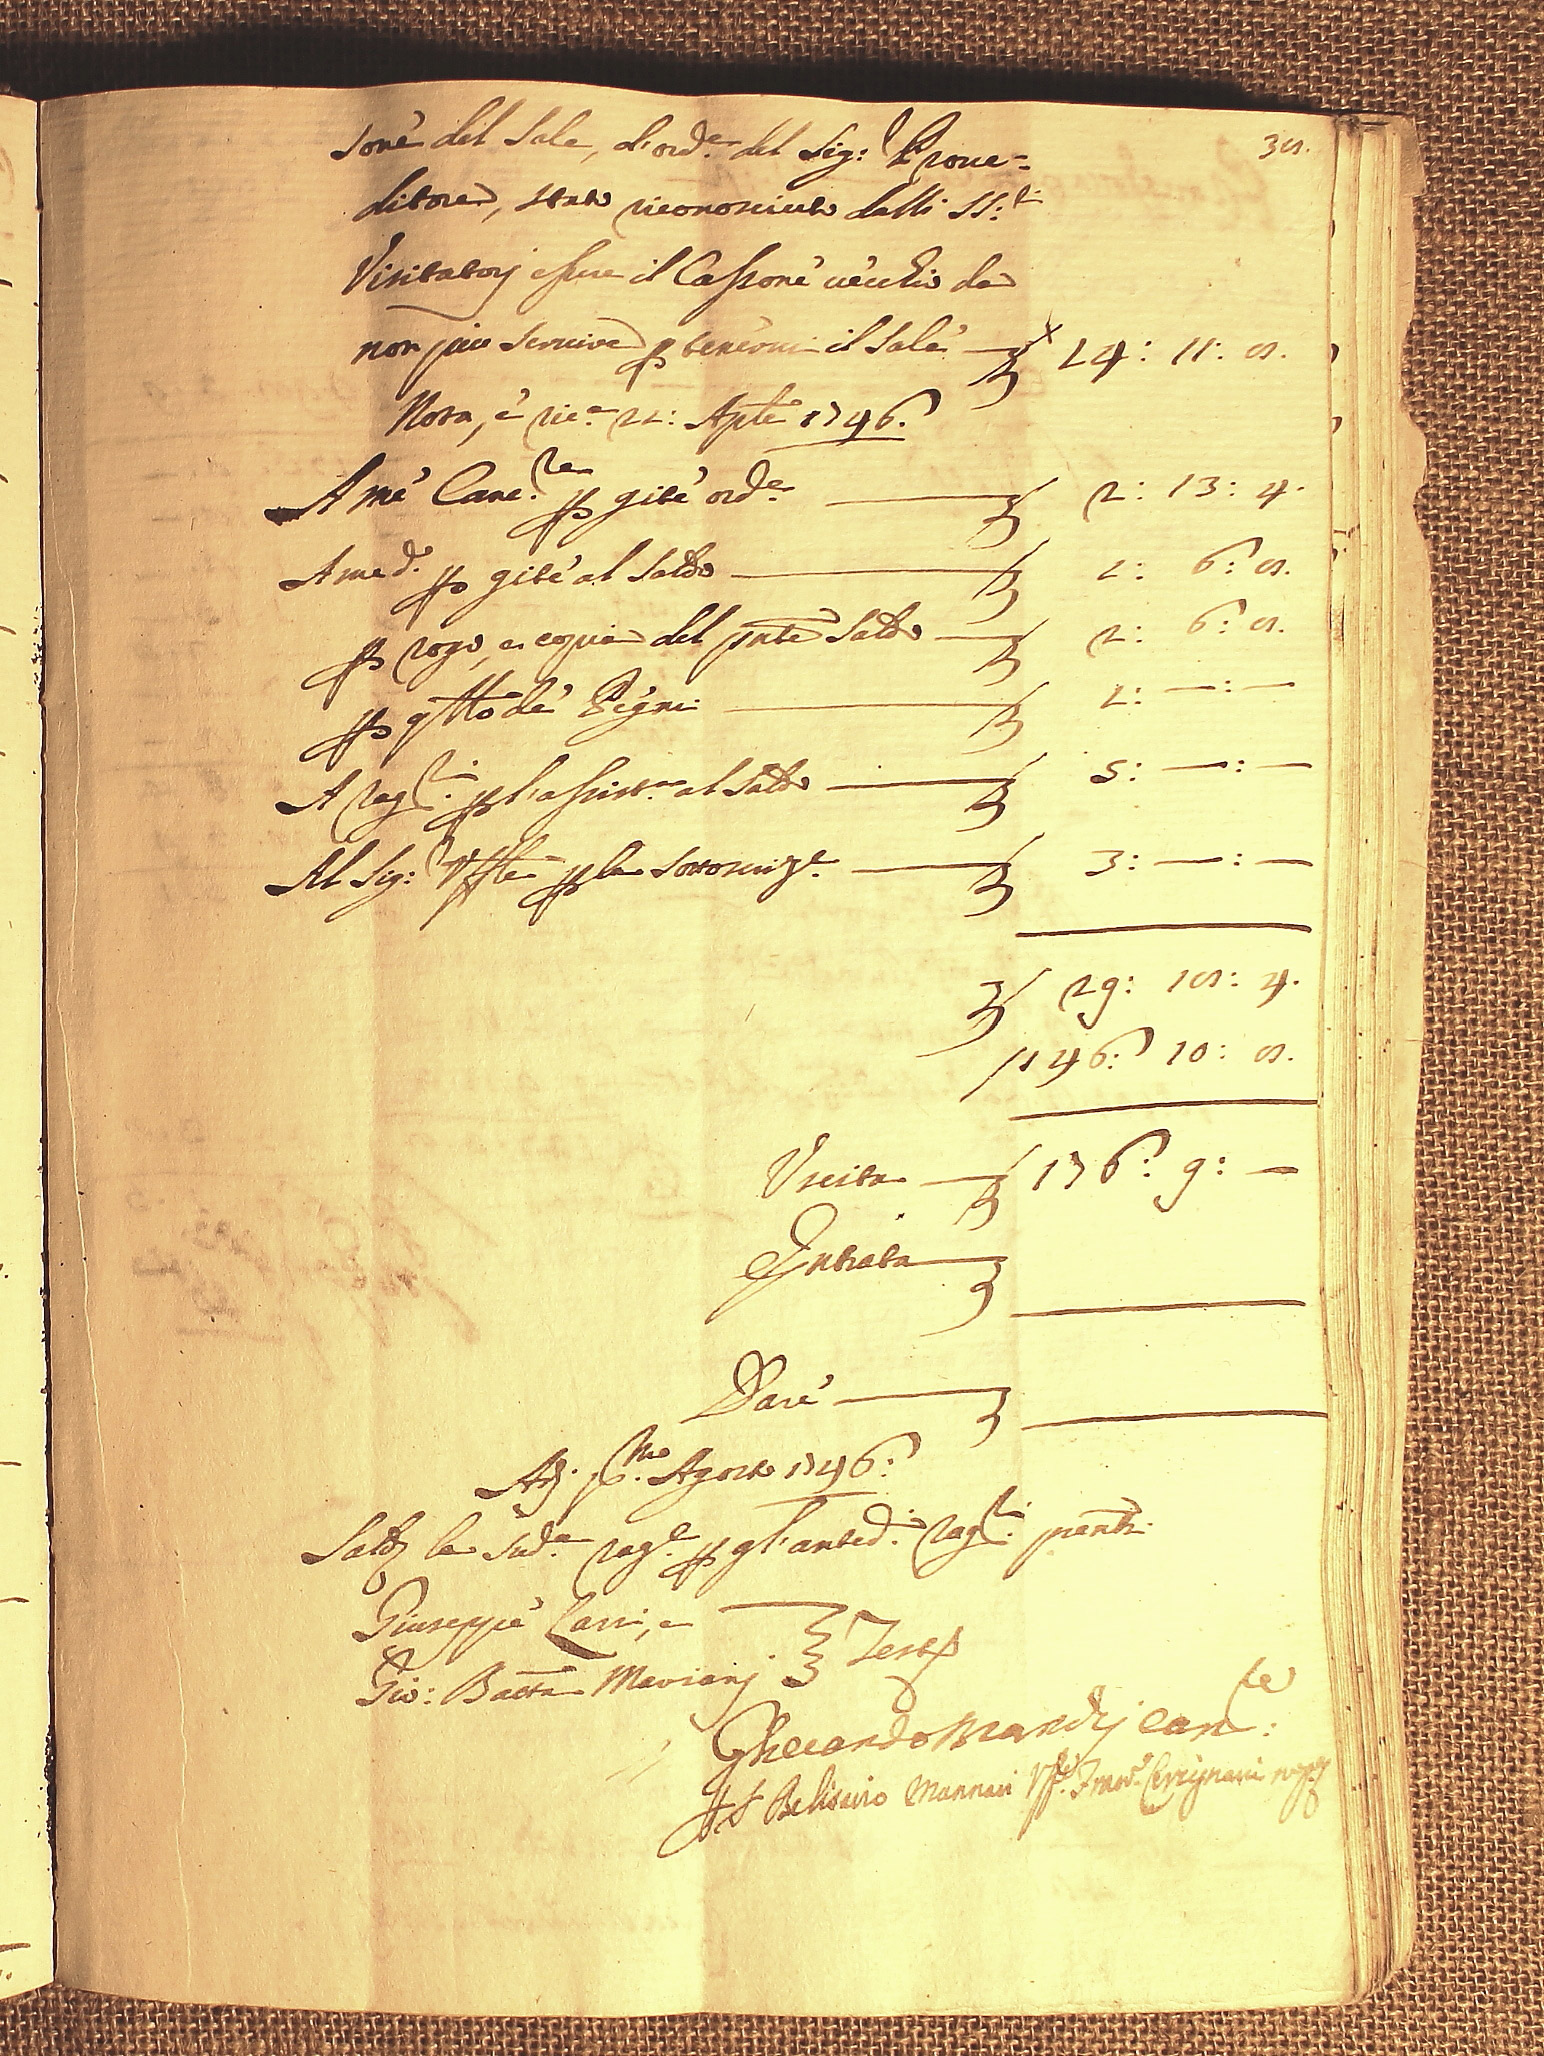 sone del Sale, d'ord.e del Sig:r Prove=
ditore, stato riconosciuto dalli SS:ri
Visitatorj essere il Cassone vecchio da
non piu servire p tenervi il Sale — 14: 11: 8.
Nota, è ric.a 22: Aple 1746.
A me Canc.re p gite ord.e — 2: 13: 4.
A me d.o p gite al Saldo — 1: 6: 8.
p rogo, e copia del pnte Saldo — 2: 6: 8.
p gtto de Pegni — 1: — : —
A rag.ri p l'assist.za al Saldo — 5: — : —
Al Sig:r Uffle p la sottoscriz.e — 3: — : —
29: 18: 4.
146: 10: 8.
Uscita — 176: 9: —
Entrata —
Dare —
Adj p.mo Agosto 1746:
Saldj la sud.a rag.e p gl'anted.i rag.ri pnti
Giuseppe Larri, e
Gio: Batta Marianj Testj
Gherardo Nardij canc.re:
Io Belisario Mannari Uff.le